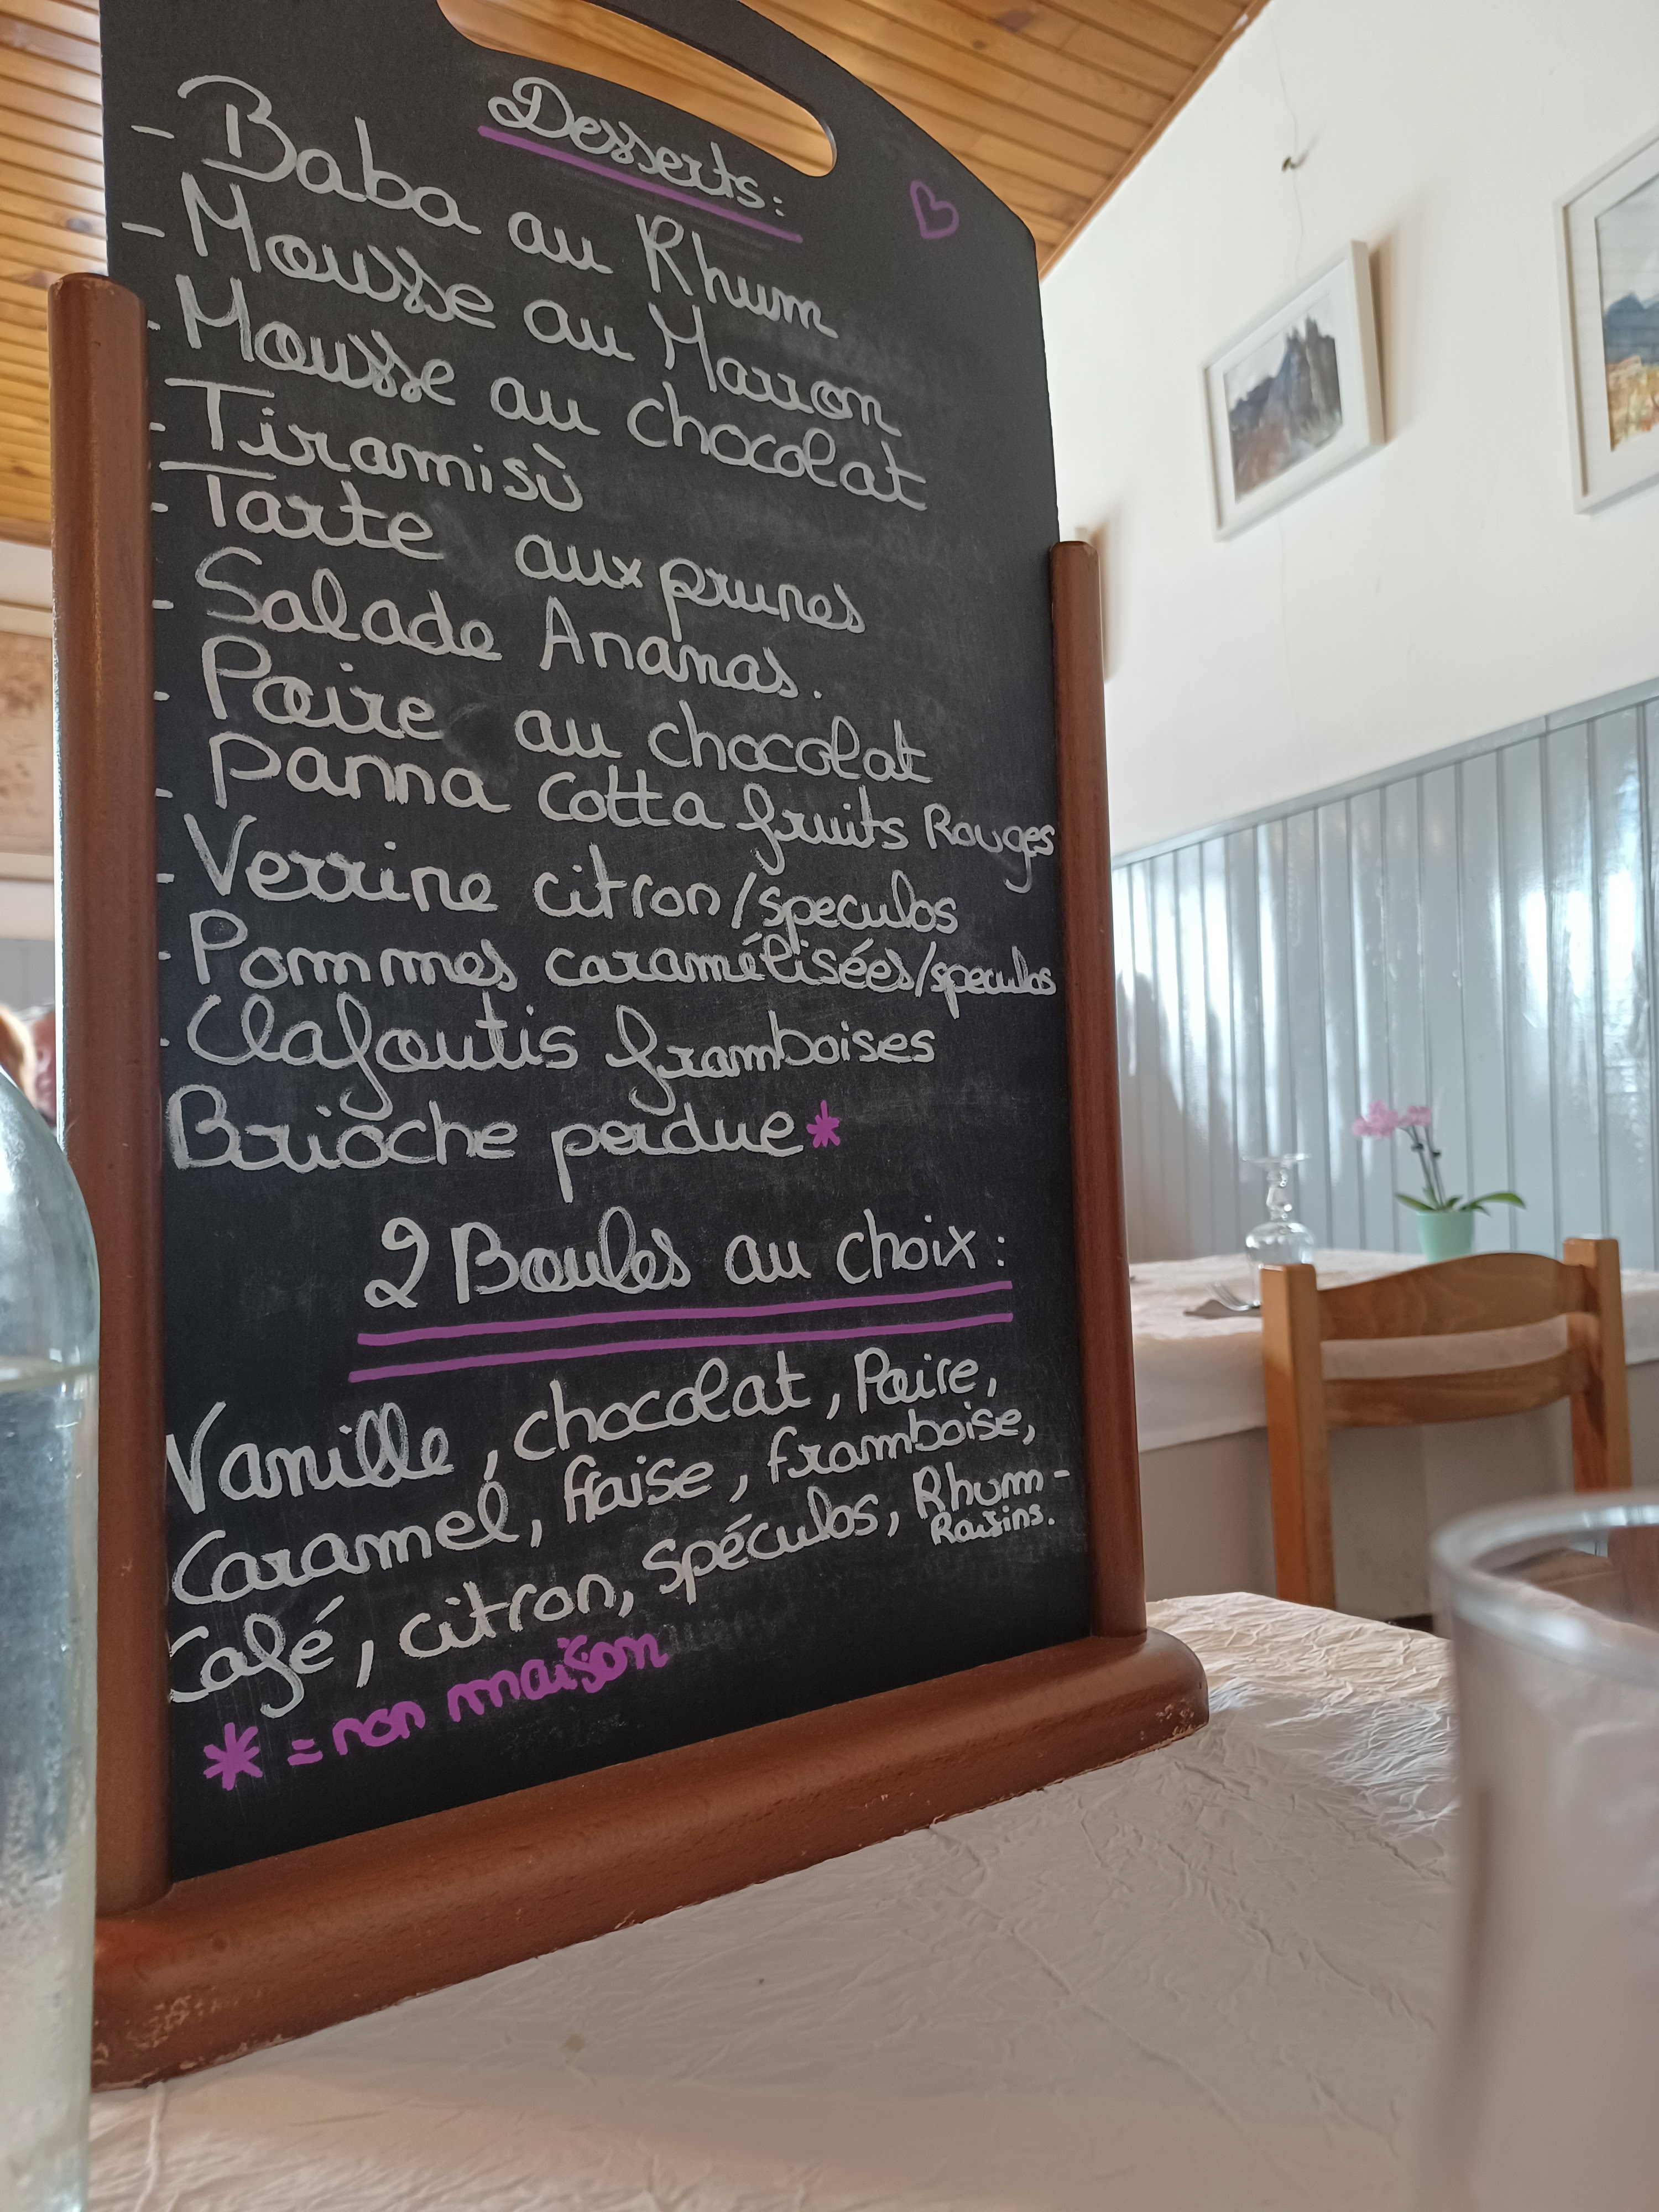 Desserts:
- Baba au Rhum
- Mousse au Marron
- Mousse au chocolat
- Tiramisù
- Tarte aux prunes
- Salade Ananas.
- Poire au chocolat
- Panna Cotta fruits Rouges
- Verrine citron/speculos
- Pommes caramélisées/speculos
- Clafoutis framboises
Brioche perdue*
2 Boules au choix:
Vanille, chocolat, Poire,
Caramel, fraise, framboise,
Café, citron, spéculos, Rhum-
Raisins.
* = non maison